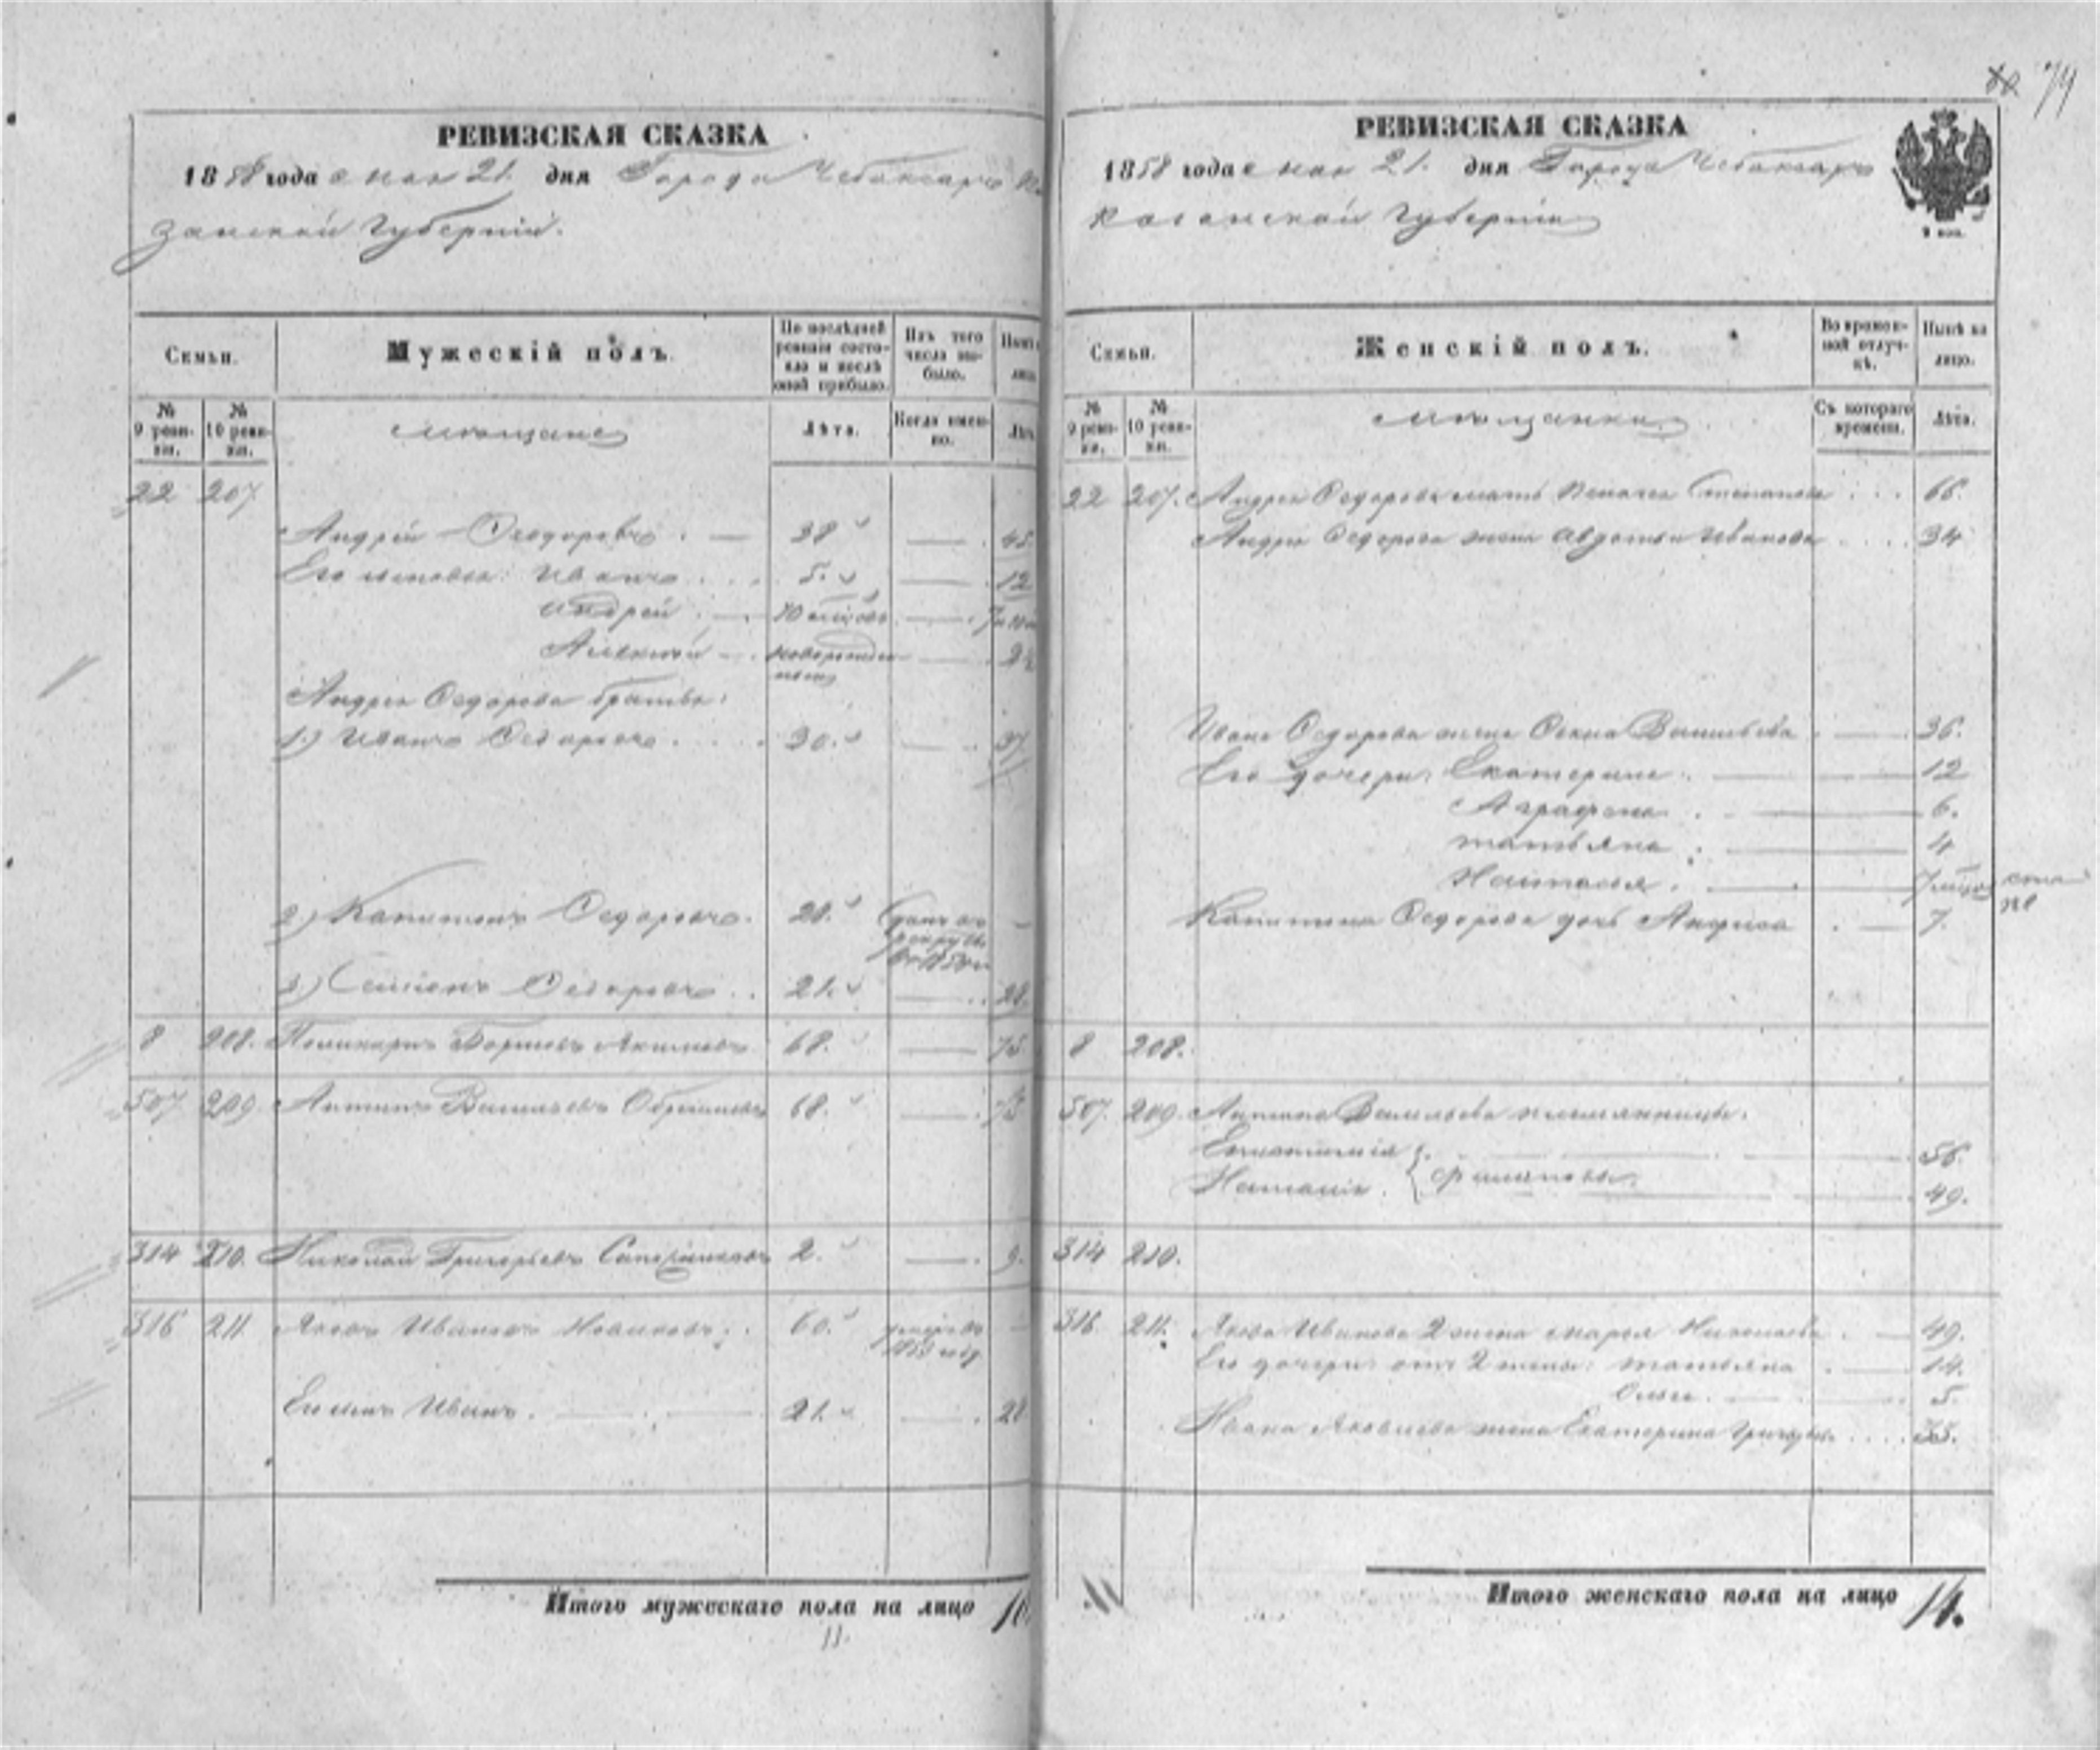 74
РЕВИЗСКАЯ СКАЗКА
1858 года мая 21. дня Города Чебоксаръ Ка
занской Губерніи.
Семьи.
Мужескій полъ.
По послѣдней ревизіи состояло и послѣ оной прибыло.
Изъ того числа выбыло.
№ 9 ревизіи.
№ 10 ревизіи.
мѣщане
Лѣта.
Когда именно.
22 207.
Андрей Ѳеодоровъ 38 45.
Его сыновья: Иванъ 5. 12
Андрей 10
Алексѣй
Андрея Ѳедорова братья:
1) Иванъ Ѳедоровъ 30. 37
2) Капитонъ Ѳедоровъ. 28. —
3) Семенъ Ѳедоровъ 21. 28.
8 208. Поликарпъ Борисовъ Акимовъ 68. 75
507 209. Антипъ Васильевъ 68. 75
314 210. Николай Григорьевъ 2. 9.
316 211 Яковъ Ивановъ Новиковъ. 60.
Его сынъ Иванъ. 21. 28
Итого мужескаго пола на лицо
11.
РЕВИЗСКАЯ СКАЗКА
1858 года мая 21. дня Города Чебоксаръ
Казанской Губерніи
Семьи.
Женскій полъ.
Во временной отлучкѣ.
Нынѣ на лицо.
№ 9 ревизіи.
№ 10 ревизіи.
мѣщанки
Съ котораго времени.
Лѣта.
22 207. Андрея Ѳедорова мать Степанова 66.
Андрея Ѳедорова жена Авдотья Иванова 34
Ивана Ѳедорова жена Васильева 36.
Его дочери: Екатерина 12
Аграфена 6.
Татьяна 4
Настасья 7
Капитона Ѳедорова дочь Анфиса 7.
8 208.
507. 209. Антипа Васильева племянницы:
56.
Наталья 49.
314 210.
316 211. Якова Иванова 2 жена Марья Николаева 49.
Его дочери отъ 2 жены: Татьяна 14.
Ольга 5.
Ивана Яковлева жена Екатерина Григорьева
Итого женскаго пола на лицо 14.